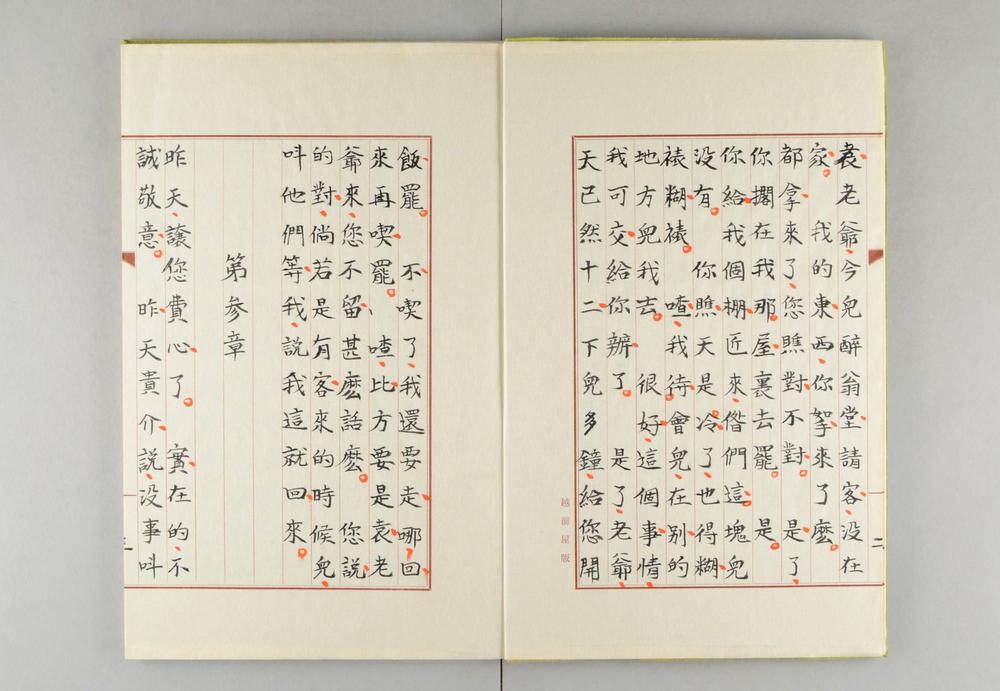 袁老爺、今兒醉翁堂請客、没在
家。 我的東西、你挐來了麽。
都拿來了、您瞧對不對。 是了、
你擱在我那屋裏去罷。 是。
你給我個棚匠來、偺們這塊兒
没有。 你瞧天是冷了、也得糊
裱糊裱。 喳、我待會兒、在别的
地方兒我去。 很好、這個事情、
我可交給你辨了。 是了老爺、
天已然十二下兒多鐘、給您開
二
越前屋版
飯罷。 不喫了、我還要走哪、回
來再喫罷。 喳、比方要是袁老
爺來、您不留甚麽話麽。 您説
的對、倘若是有客來的時候兒、
呌他們等我、説我這就回來。
第参章
昨天、讓您費心了。 實在的、不
誠敬意。 昨天貴介説、没事呌
三